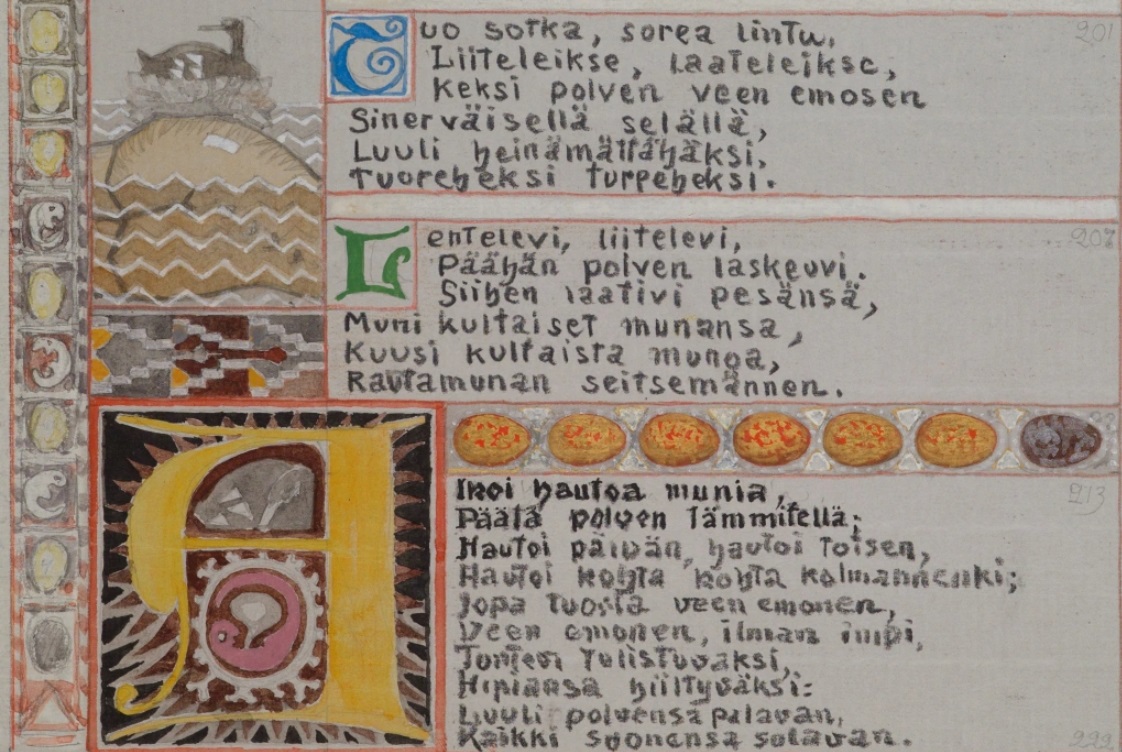 201
Tuo sotka, sorea lintu,
Liiteleikse, laateleikse,
Keksi polven veen emosen
Sinerväisellä selällä,
Luuli heinämättähäksi,
Tuoreheksi turpeheksi.
207
Lentelevi, liitelevi,
Päähän polven laskeuvi.
Siihen laativi pesänsä,
Muni kultaiset munansa,
Kuusi kultaista munoa,
Rautamunan seitsemännen.
213
Alkoi hautoa munia,
Päätä polven lämmitellä;
Hautoi päivän, hautoi toisen,
Hautoi kohta kohta kolmannenki;
Jopa tuosta veen emonen,
Veen emonen, ilman impi,
Tuntevi tulistuvaksi,
Hipiänsä hiiltyväksi:
Luuli polvensa palavan,
Kaikki suonensa sulavan.
222